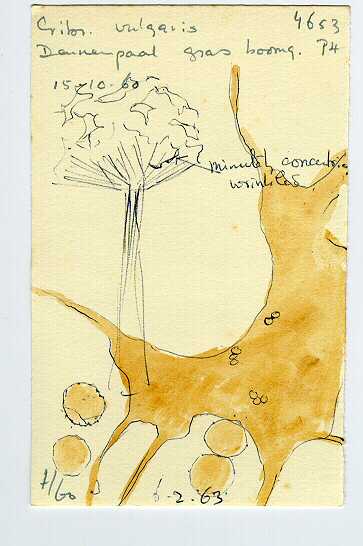 Cribr. vulgaris 4653
Dennenpaal gras boomg. P4
15-10-60
minutely concentric
wrinkled
H/60
6-2-63